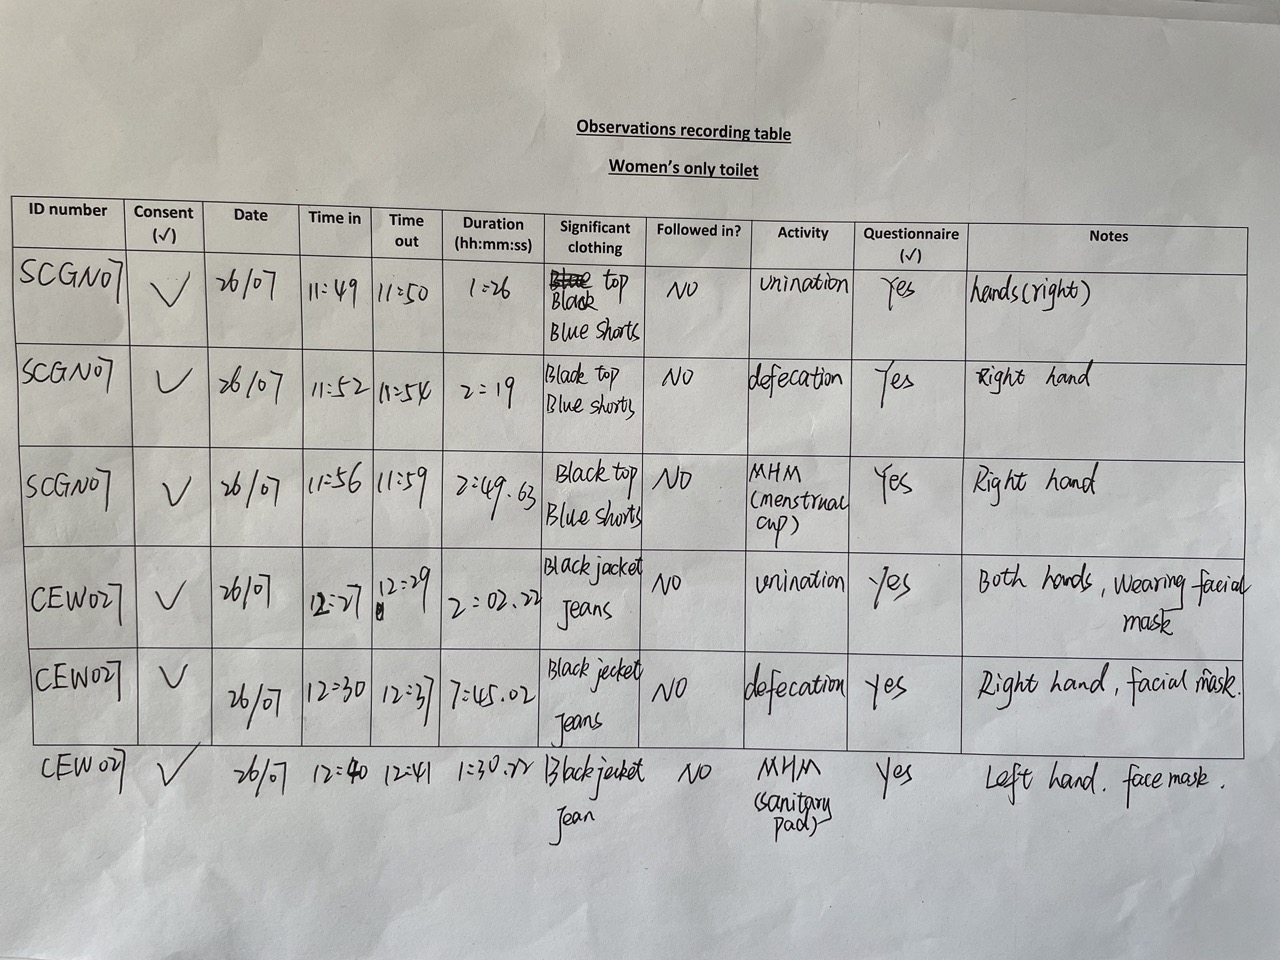 Observations recording table
Women's only toilet
ID number Consent (√) Date Time in Time out Duration (hh:mm:ss) Significant clothing Followed in? Activity Questionnaire (√) Notes
SCGN07 √ 26/07 11:49 11:50 1:26 Blue top Black Blue shorts NO urination Yes hands(right)
SCGN07 √ 26/07 11:52 11:54 2:19 Black top Blue shorts NO defecation Yes Right hand
SCGN07 √ 26/07 11:56 11:59 2:49.63 Black top Blue shorts NO MHM (menstrual cup) Yes Right hand
CEW027 √ 26/07 12:27 12:29 2:02.22 Black jacket Jeans NO urination Yes Both hands, wearing facial mask
CEW027 √ 26/07 12:30 12:37 7:45.02 Black jecket Jeans NO defecation yes Right hand, facial mask.
CEW027 √ 26/07 12:40 12:41 1:30.22 Black jecket Jean NO MHM (sanitary pad) Yes Left hand. face mask.